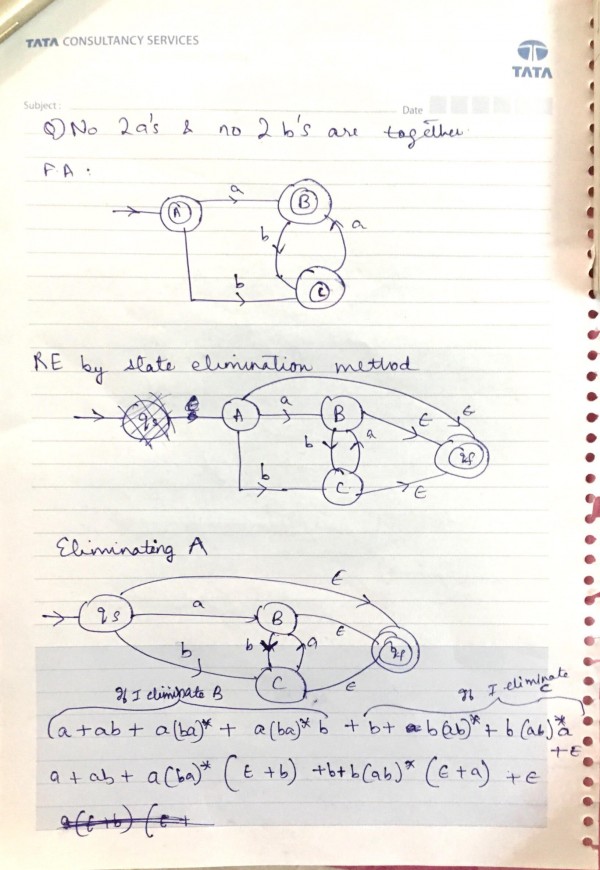 TATA CONSULTANCY SERVICES
TATA
Subject :
Date
Q) No 2a's & no 2 b's are together.
F.A :
a
A
B
b
a
b
C
RE by state elimination method
qs
A
a
B
ε
ε
b
a
qf
b
C
ε
Eliminating A
ε
qs
a
B
ε
b
b
a
qf
C
ε
If I eliminate B
If I eliminate C
(a + ab + a(ba)* + a(ba)* b + b + b(ab)* + b(ab)* a + ε
a + ab + a(ba)* (ε + b) + b + b(ab)* (ε + a) + ε
a(ε+b) (ε+